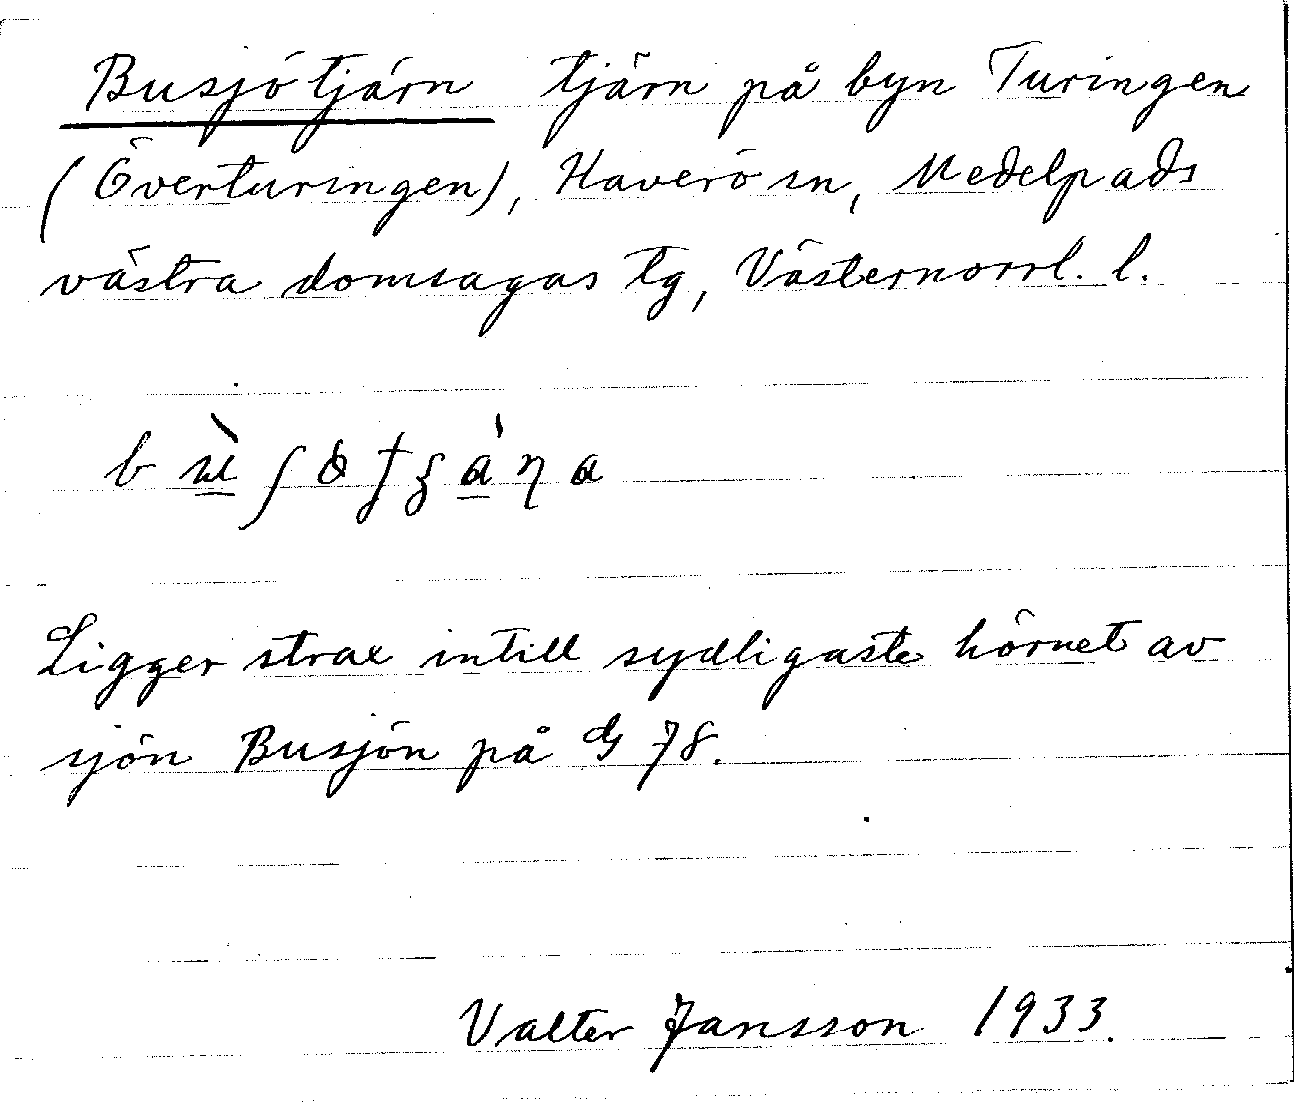 Busjötjärn tjärn på byn Turingen
(Överturingen), Haverö sn, Medelpads
västra domsagas tg, Västernorrl. l.
Ligger strax intill sydligaste hörnet av
sjön Busjön på G 78.
Valter Jansson 1933.